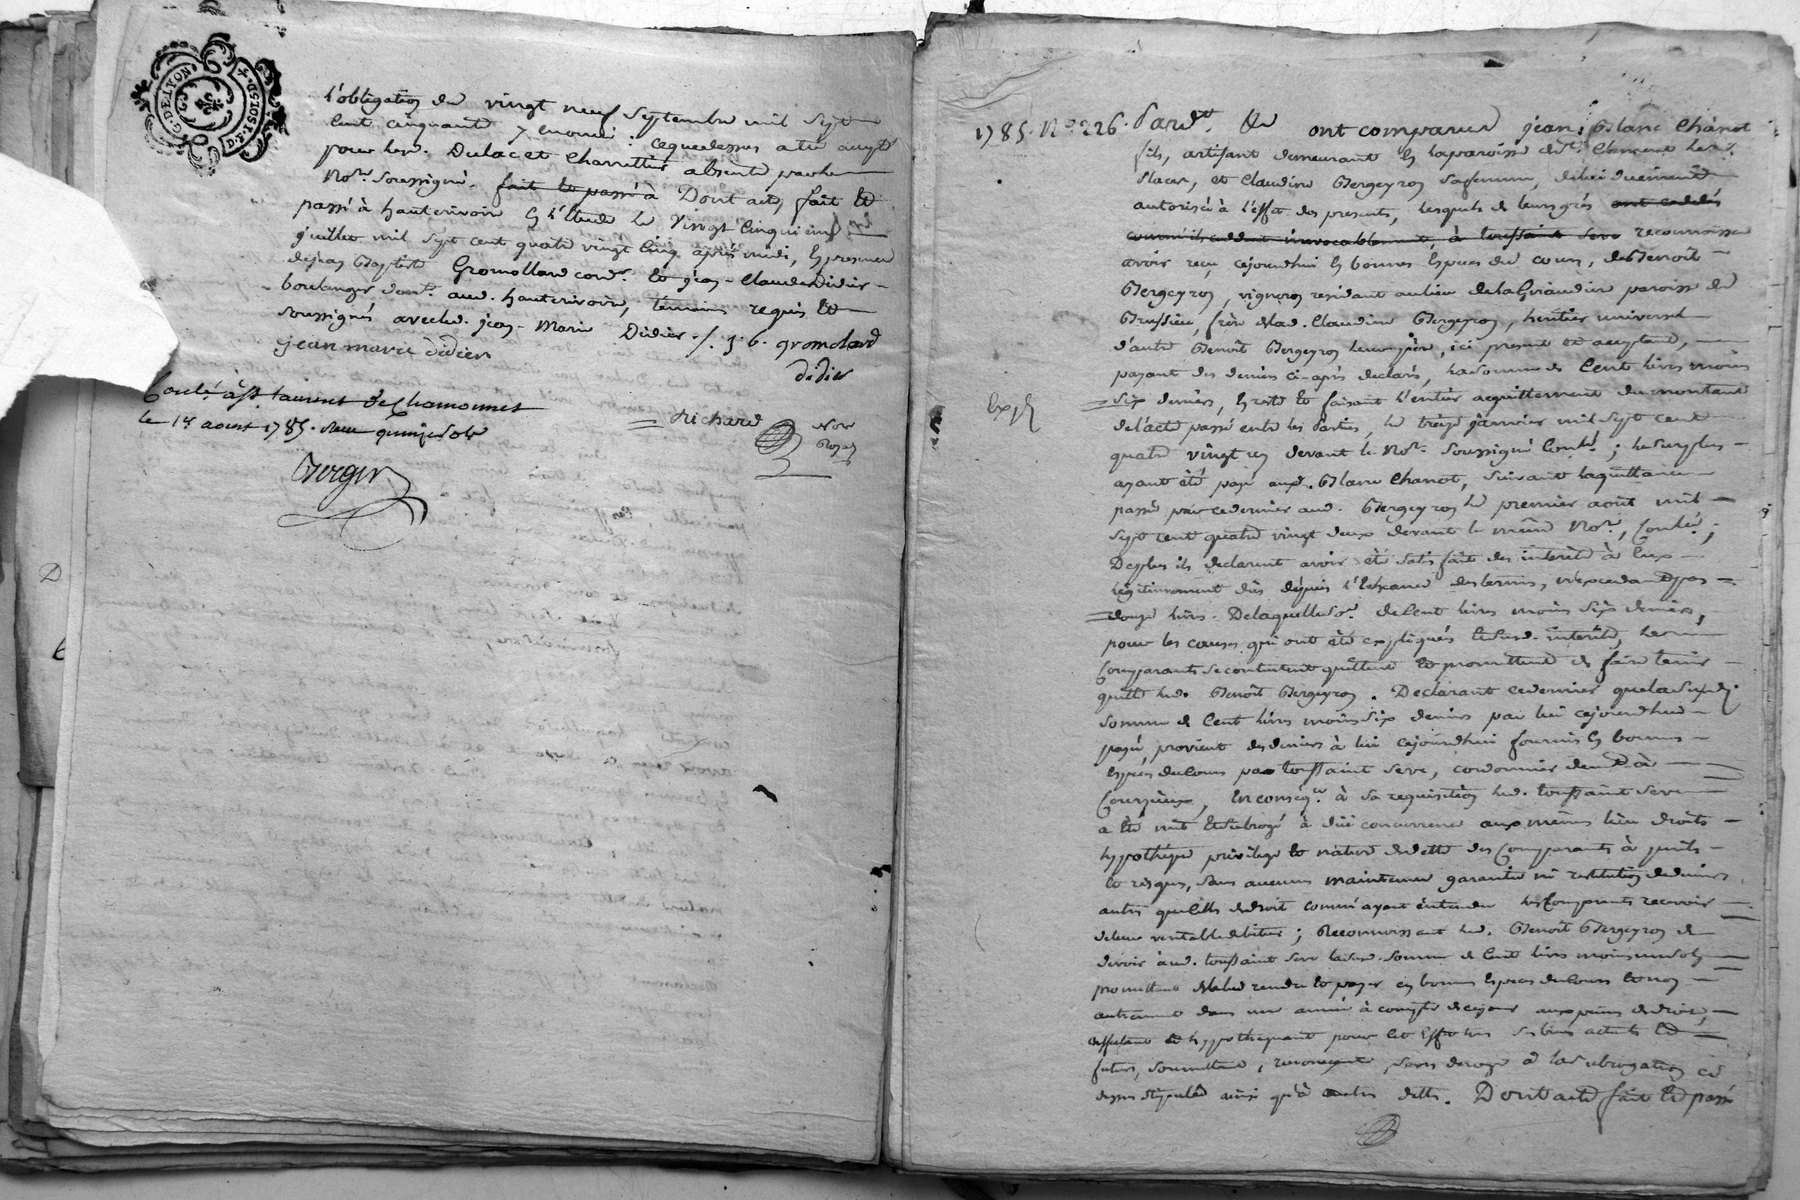 G. DE LYON.
D. 1. SOLS 4. D.
l'obligation du vingt neuf Septembre mil Sept
Cent cinquante
pour led. Dulac et Charretier absente par le
Not.re soussigné. fait et passé à Dont acte, fait et
passé à hauterivoire En l'Etude le Vingt Cinquieme
juillet mil Sept cent quatre vingt Cinq après midi, En presence
de jean Baptiste Gromollard cord.r et jean-Claude Didier
boulanger dem.t aud. hauterivoire, temoins requis et
soussignés avec led. jean-Marie Didier ./. j. b. gromolard
jean marie didier
didier
Conl.é à St. laurent de Chamousset
le 14 aoust 1785. Reçu quinze sols
Richard
Not.re
Royal
Berger
1785. N.o 226. Pard.t &c ont comparu jean Blanc Chanot
fils, artisant demeurant En la paroisse de St. Clement les
Places, et Claudine Bergeyron sa femme, de lui duement
autorisée à l'effet des presents, lesquels de leurs grés ont cedés
comm'ils cedent irrevocablement, à toussaint Serve reconnoissent
avoir reçu cejourdhui En bonnes Especes du cours, de Benoît
Bergeyron, vigneron residant au lieu de la Giraudiere paroisse de
Brussieu, frère de lad. Claudine Bergeyron, heritier universel
d'autre Benoît Bergeyron leur père, ici present et acceptant,
payant des deniers ci-après declarés, la somme de Cent livres moins
Exp.é
six deniers, En reste et faisant l'entier acquittement du montant
de l'acte passé entre les Parties, le treize janvier mil Sept cent
quatre vingt un devant le Not.re soussigné Conl.é ; le surplus
ayant été payé aud. Blanc Chanot, suivant la quittance
passée par ce dernier aud. Bergeyron le premier août mil
Sept cent quatre vingt deux devant le même Not.re, Conl.é ;
De plus ils declarent avoir été satisfait des interêts à Eux
legitimement dus depuis l'Echeance des termes, n'excedant pas
douze livres. De laquelle so.e de Cent livres moins Six deniers,
pour les causes qui ont été expliqués Et lesd. interêts, les
Comparants se contentent quittent et promettent de faire tenir
quitte led. Benoît Bergeyron. Declarant ce dernier que la susd.
somme de Cent livres moins six deniers par lui cejourdhui
payée provient des deniers à lui cejourdhui fournis En bonnes
Especes du Cours par toussaint Serve, cordonnier dem.t à
Courzieux, En conseq.ce à sa requisition led. toussaint Serve
a Eté mis Et subrogé à dui concurrence aux mêmes lieu droits
hypothéque privilege et nature de dette des Comparants à perils
et risques, sans aucune maintenue garantie ni restitution de deniers
autre que celle de droit comm'ayant entendu les Comparants recevoir
de leur veritable debiteur ; Reconnoissant led. Benoît Bergeyron de
devoir aud. toussaint Serve lad. somme de Cent livres moins
promettant de la lui rendre et payer en bonnes Especes du Cours et non
autrement dans une année à compter de cejour aux peines de droit,
affectant et hypothequant pour cet Effet tous ses biens actuels et
futurs, soumettant, renonceant, sans deroger à la subrogation ci
dessus stipulée ainsi qu'à autre dette. Dont acte fait Et passé